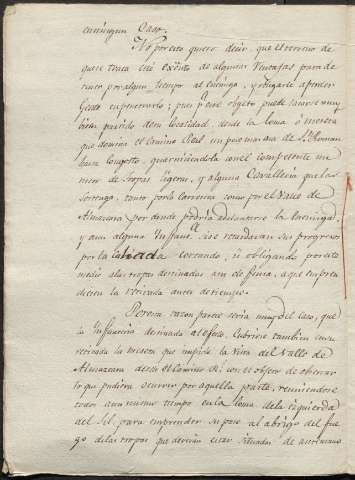 en ningun Caso.
No por esto quiero decir, que el terreno de
que se trata esté exento de algunas ventajas para de
tener por algun tiempo al enemigo, y obligarle a proner
gente en penetrarlo; pues p.r ese objeto puede sacarse muy
bien partido de su localidad, desde la loma ó meseta
que domina el camino Real un poco mas acá de S.n Roman
hasta Congosto, guarniciendola con el competente nu
mero de tropas ligeras, y alguna Cavalleria que las
sostenga, tanto por la carretera como por el valle de
Almazara por donde podría adelantarse la Enemiga,
y aun alguna Infant.a si se retardaran sus progresos
por la Calzada cercando, ú obligando por este
medio a las tropas destinadas a su defensa, a que empren
diesen la retirada antes de tiempo.
Por esta razon parece sería muy del caso, que
la Infantería destinada al efecto, Cubriese tambien en su
retirada la meseta que impide la vista del Valle de
Almazara desde el Camino R.l con el objeto de observar
lo que pudiera ocurrir por aquella parte, reuniendose
todos a un mismo tiempo en la loma de la izquierda
del Sil, para emprender su paso al abrigo del fue
go de las tropas que deverán estar situadas de antemano